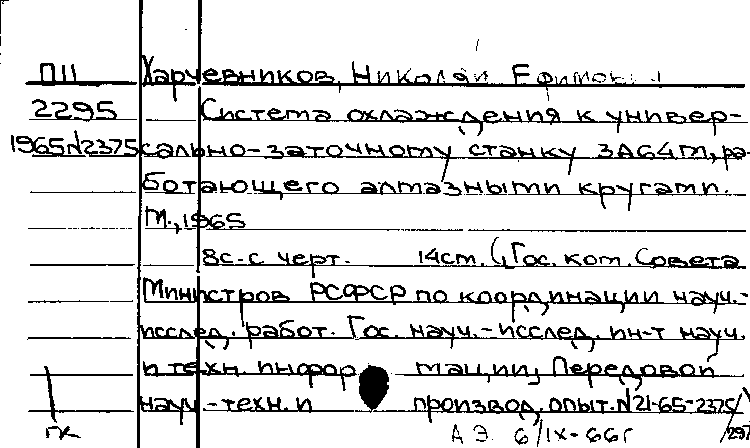 П11 Харчевников, Николай Ефимович
2295 Система охлаждения к универ-
1965№2375 сально-заточному станку 3А64М, ра-
ботающего алмазными кругами.
М., 1965
8с. с черт. 14см. (Гос. ком. Совета
Министров РСФСР по координации науч.-
исслед. работ. Гос. науч.-исслед. ин-т науч.
и техн. информации, Передовой
науч.-техн. и производ. опыт. №21-65-2375/
гк А Э 6/IX-66г